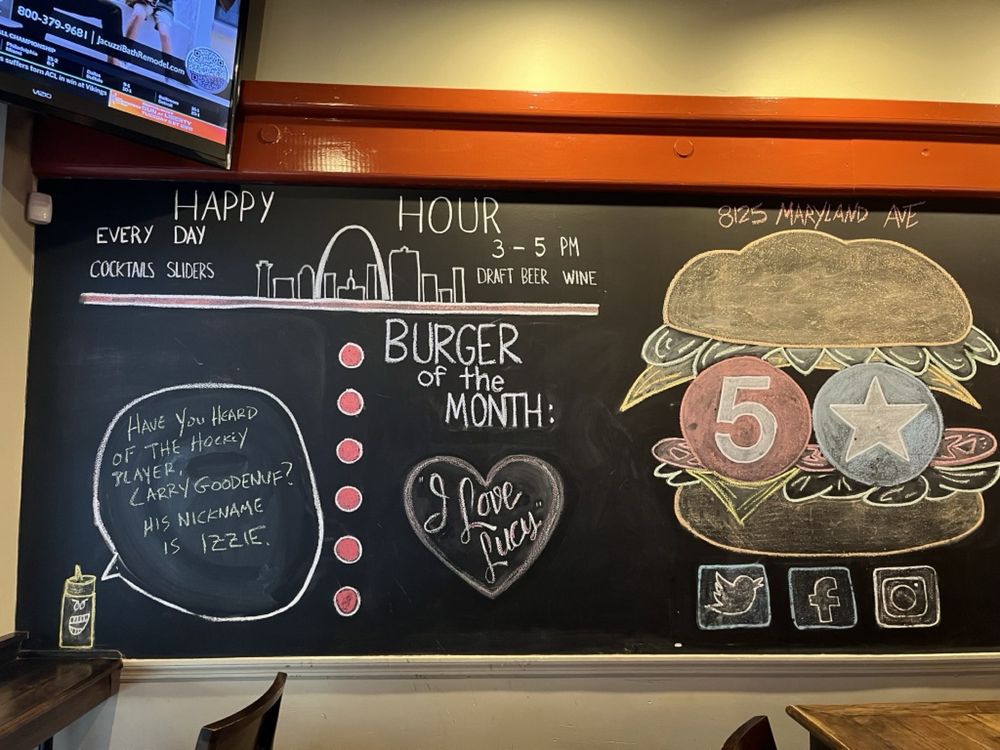 800-379-9681 | JacuzziBathRemodel.com
Philadelphia
Miami
Dallas
Buffalo
Baltimore
Detroit
suffers torn ACL in win at Vikings
VIZIO
HAPPY HOUR
EVERY DAY
3 - 5 PM
COCKTAILS SLIDERS
DRAFT BEER WINE
BURGER
of the
MONTH:
"I Love
Lucy"
HAVE YOU HEARD
OF THE HOCKEY
PLAYER,
CARRY GOODENUF?
HIS NICKNAME
IS IZZIE.
8125 MARYLAND AVE
5